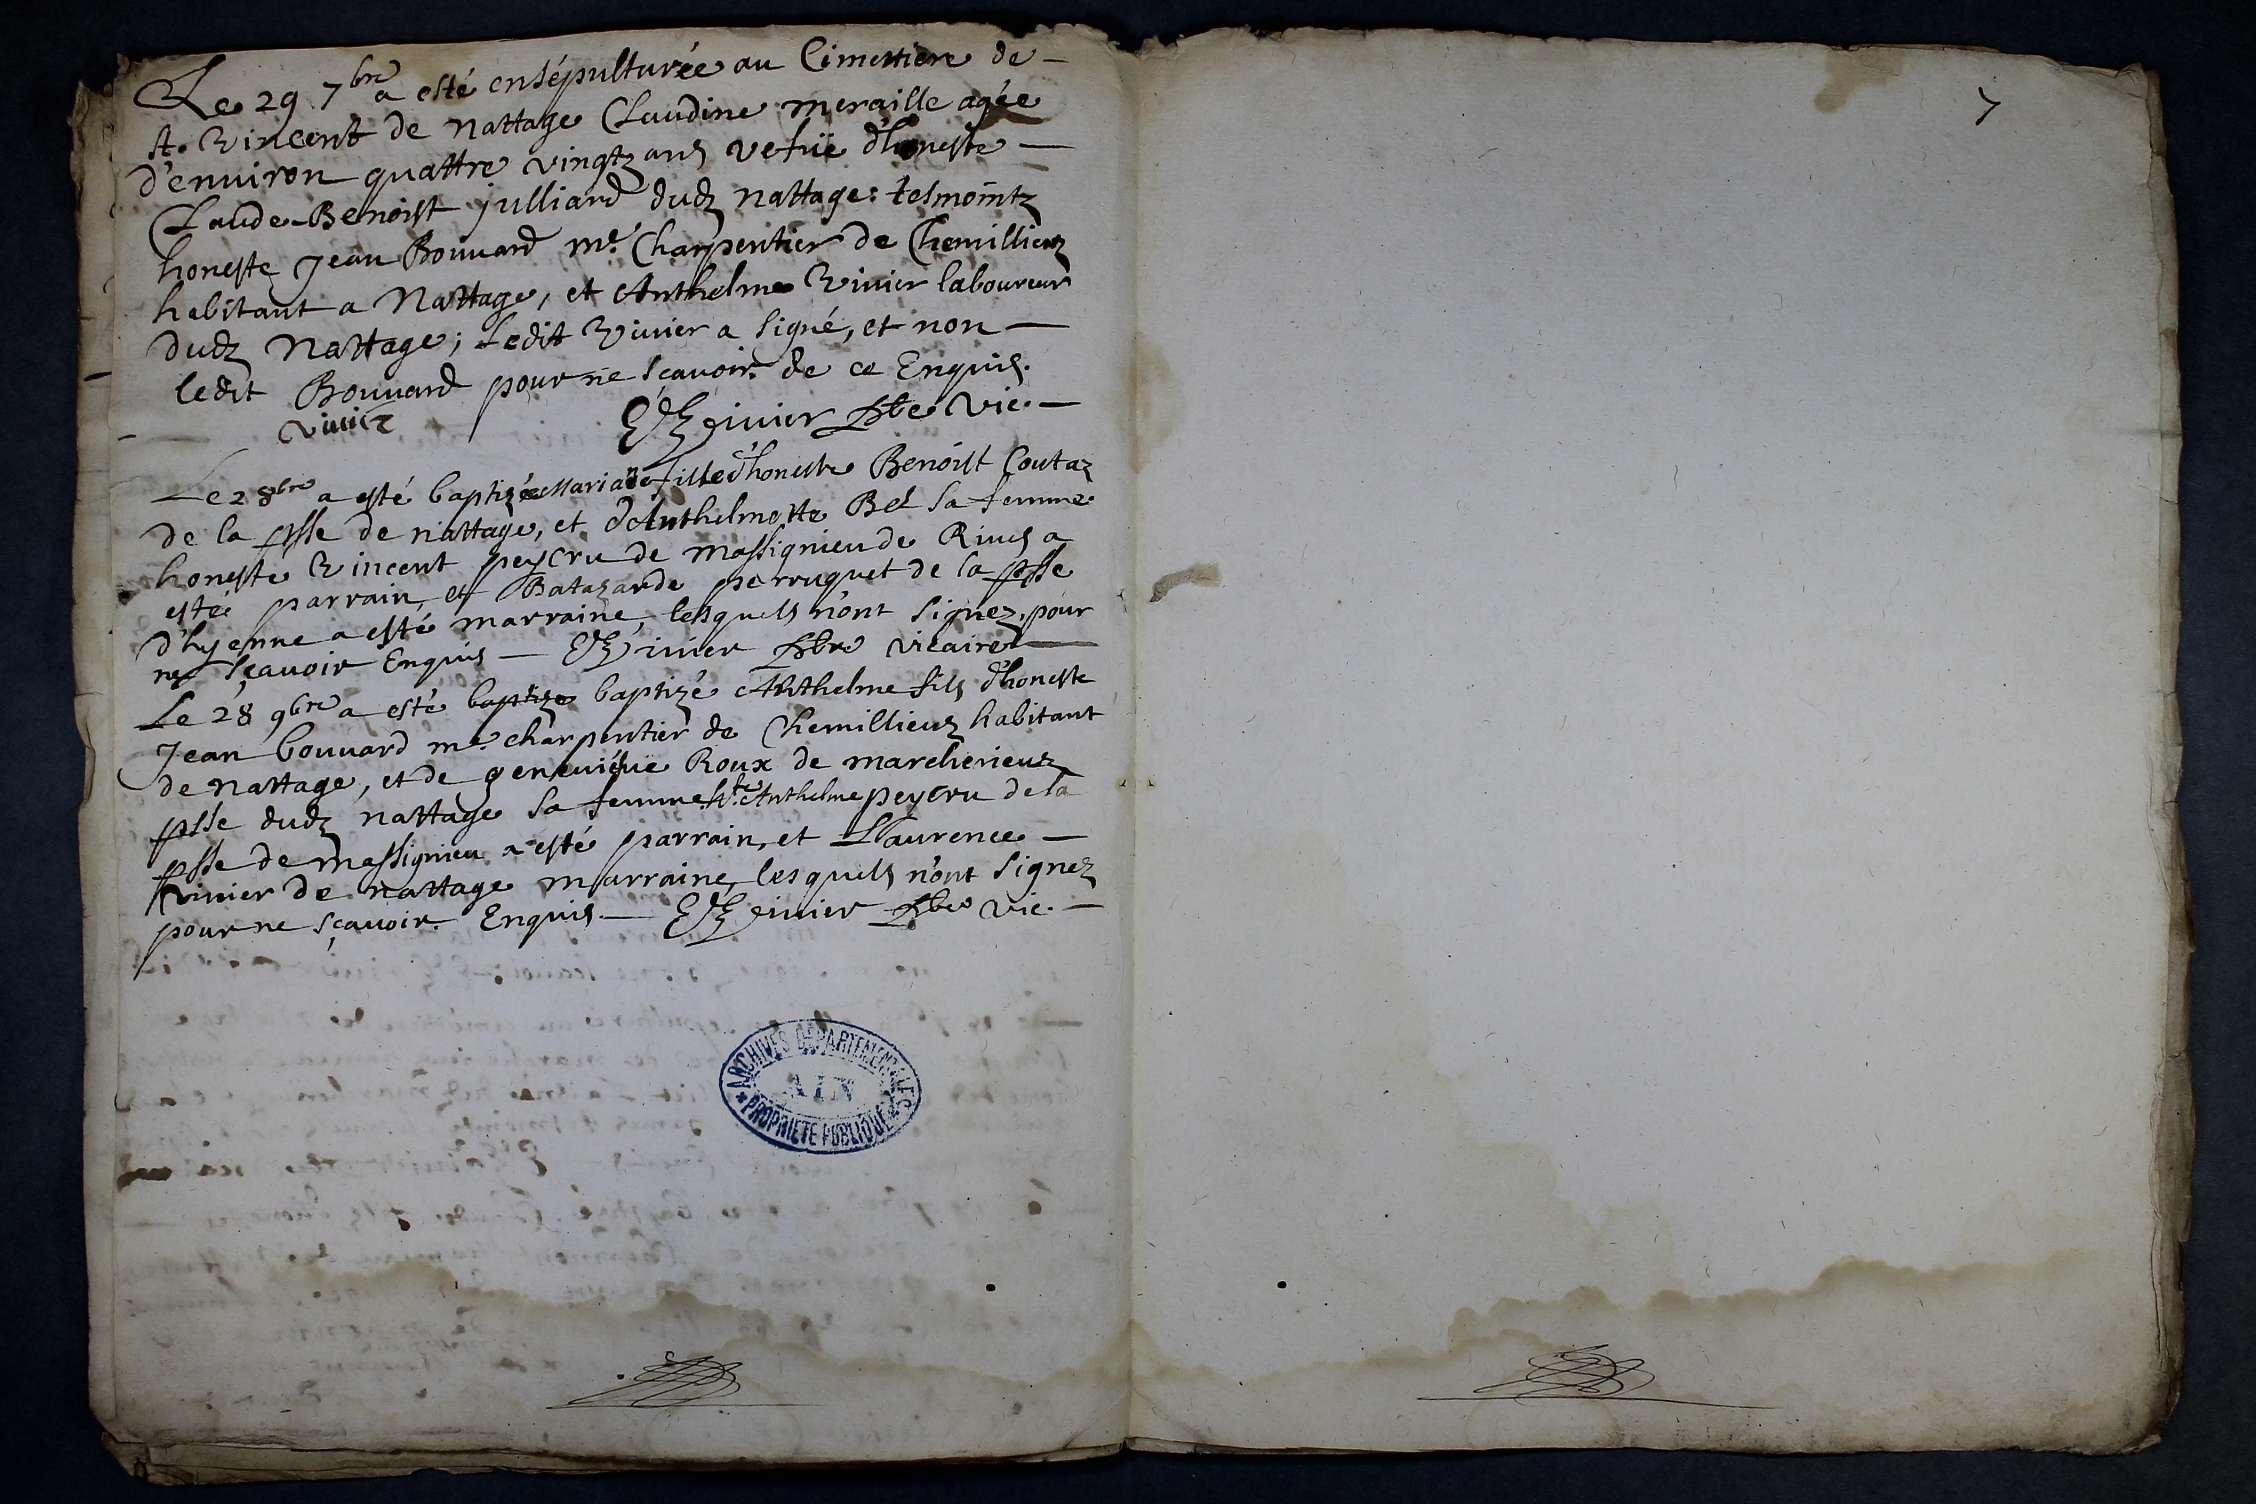 Le 29 7bre a esté ensépulturée au Cimettiere de
St. Vincent de Nattage Claudine meraille agée
d'enuiron quattre vingtz ans vefüe d'honeste
Claude Benoist julliard dudz nattage: tesmointz
honeste Jean Bouuard me. Charpentier de Chemillieuz
habitant a Nattage, et Anthelme Viuier laboureur
dudz Nattage; Ledit Viuier a signé, et non
ledit Bouuard pour ne sçauoir de ce Enquis.
viuier Viuier Pbre Vic.
Le 2 8bre a esté baptizée Mariane fille d'honeste Benoist Coutaz
de la psse de nattage, et d'Anthelmette Bel sa femme
honeste Vincent peycru de massignieu de Riues a
esté parrain, et Batazarde perruquet de la psse
d'hyenne a esté marraine, lesquels n'ont signez, pour
ne sçauoir Enquis Viuier Pbre vicaire
Le 28 9bre a esté baptize baptizé Anthelme fils d'honeste
Jean bouuard me. charpentier de Chemillieuz habitant
de nattage, et de geneuiéue Roux de marcherieuz
psse dudz nattage sa femme. hte Anthelme peycru de la
psse de massignieu a esté parrain, et Llaurence
viuier de nattage marraine, lesquels n'ont signez
pour ne sçauoir. Enquis. Viuier Pbre Vic.
ARCHIVES DÉPARTEMENTALES
AIN
* PROPRIETE PUBLIQUE *
7